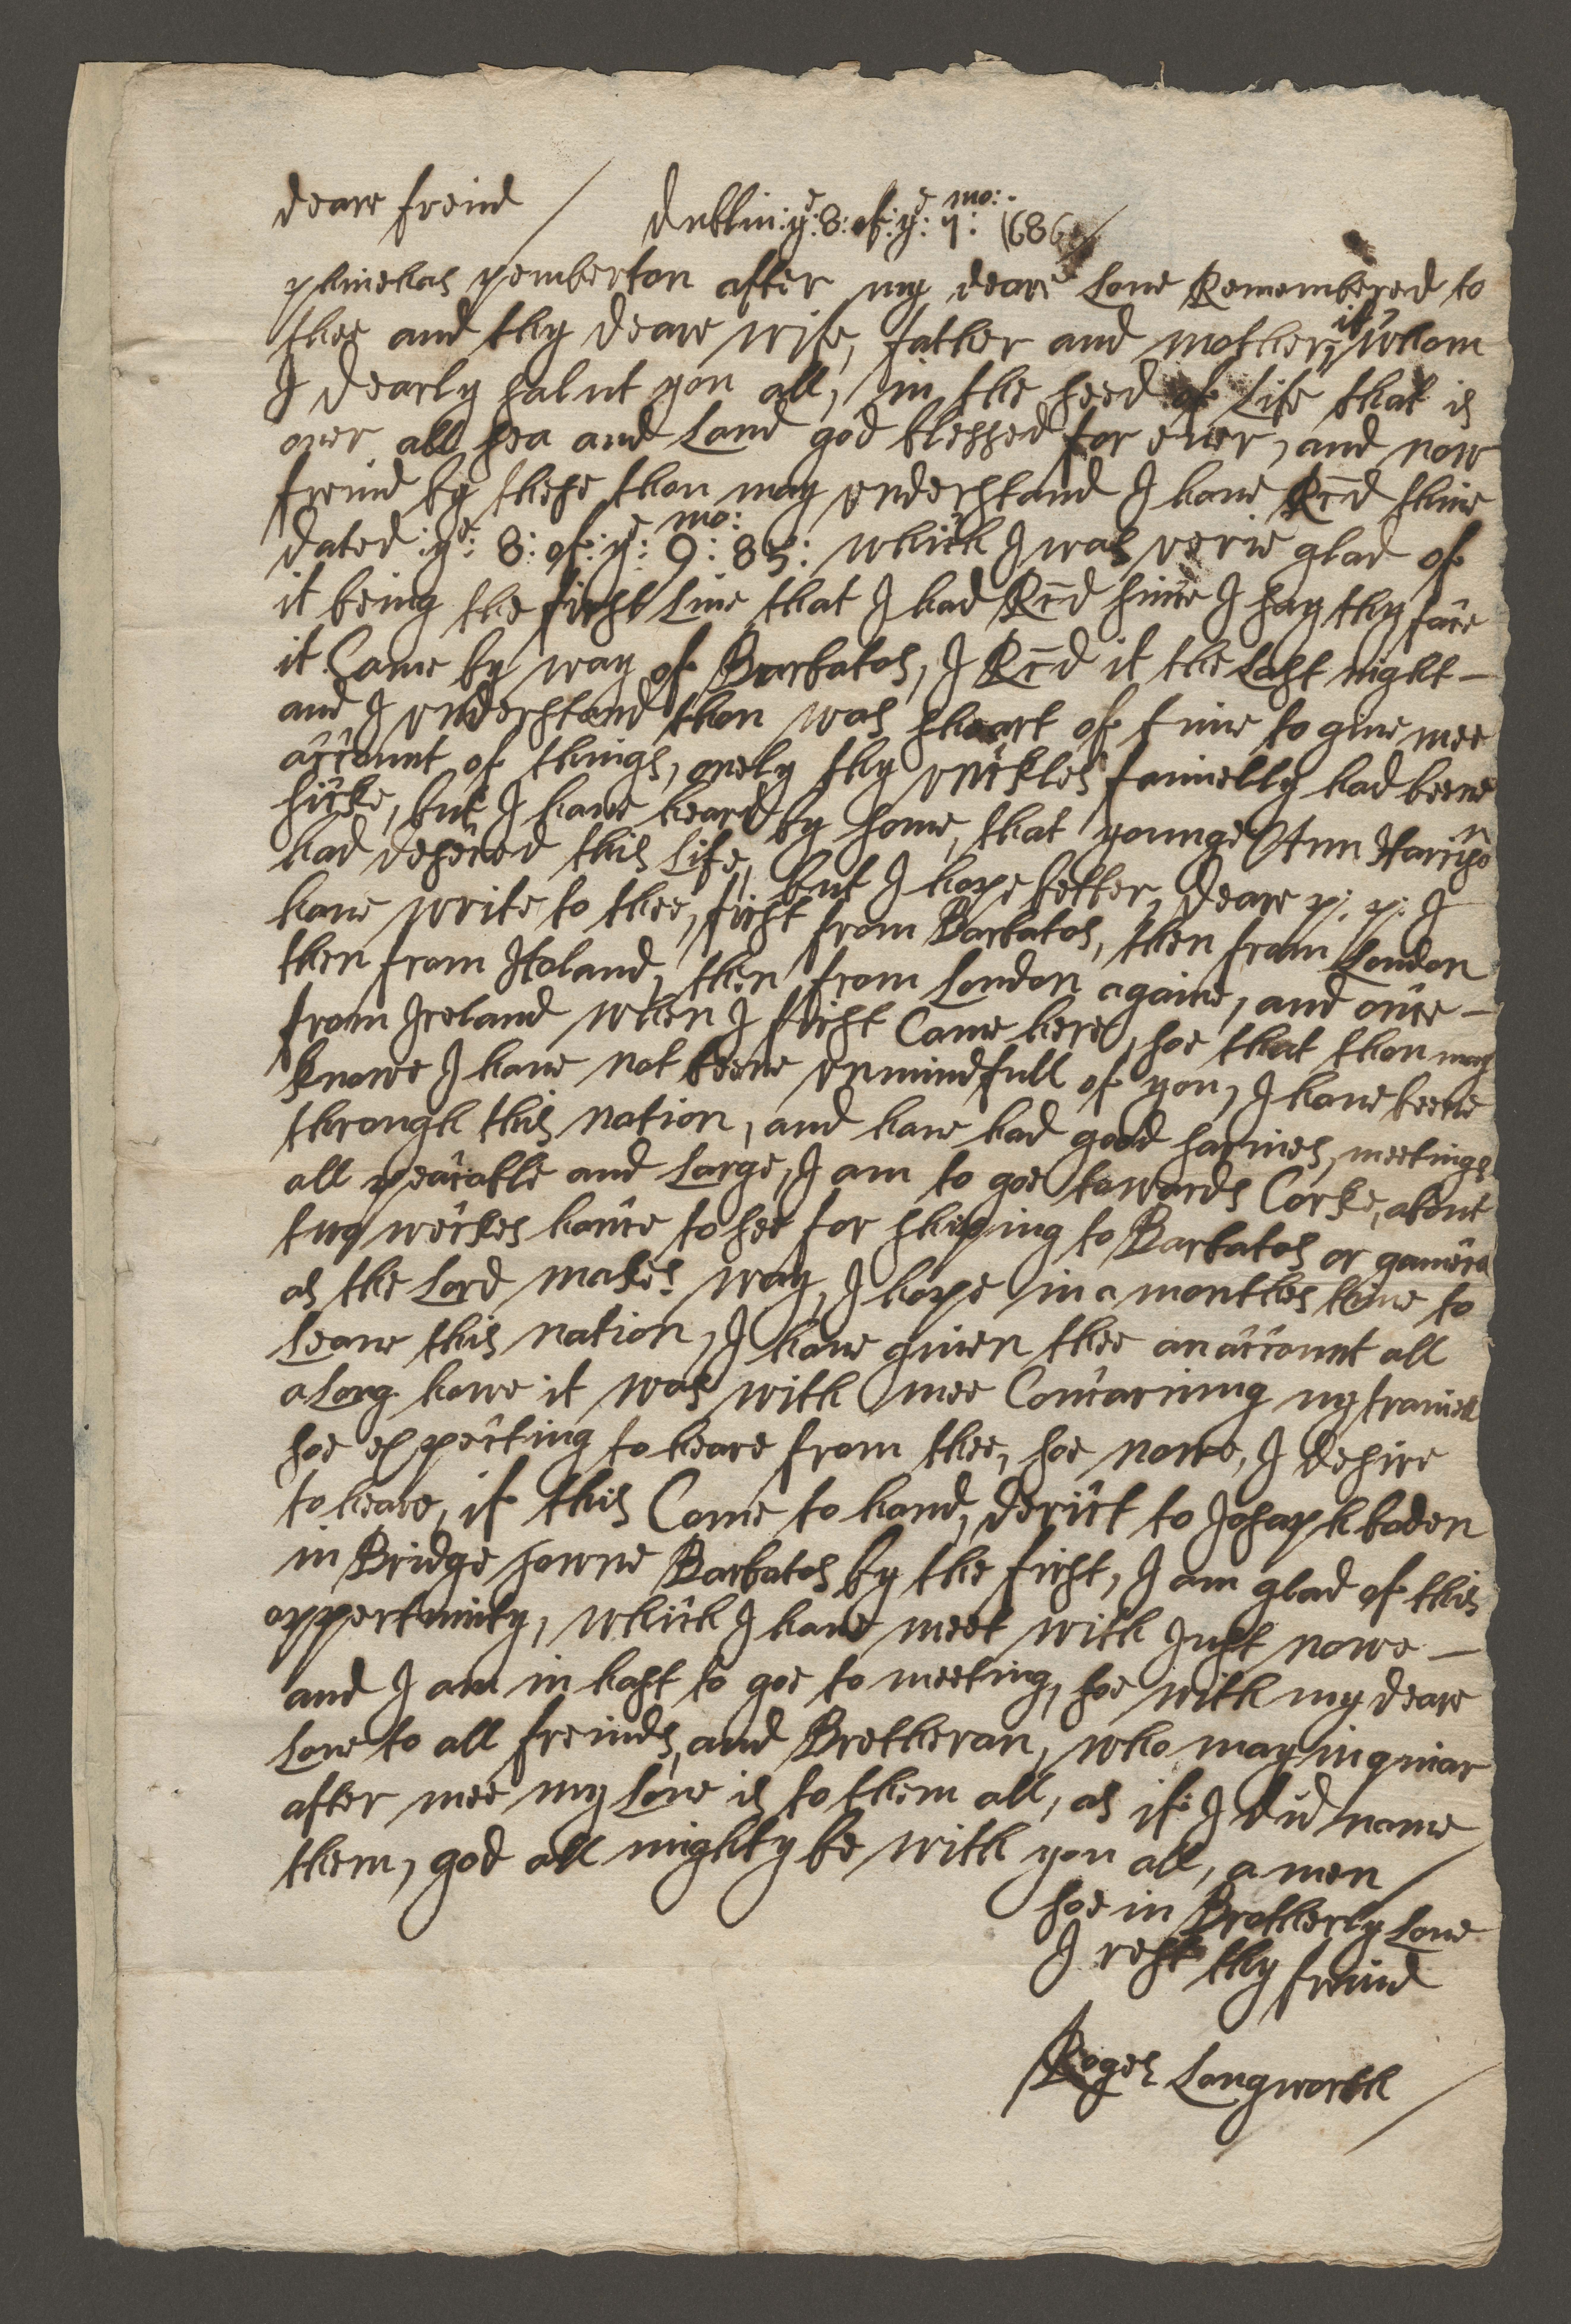 deare freind / dublin: yᵉ: 8: of: yᵉ: 1: mo: 1686
phinehas pemberton after my deare Love Remembered to
thee and thy deare wife, father and mother, it whom
I dearly salut you all, in the seed of Life that is
over all sea and Land god blessed for ever, and now
freind by these thou may vnderstand I have Rc̄d thine
dated: yᵉ: 8: of: yᵉ: 9: mo: 85: which I was verie glad of
it being the first Line that I had Rc̄d since I say thy face
it Came by way of Barbatos, I Rc̄d it the Last night –
and I vnderstand thou was sheart of time to give mee
account of things, onely thy vnckles famelly had beene
sicke, but I have heard by some, that younge Ann Harriso
had deseced this Life, but I hope better, deare p: p: I
have write to thee, first from Barbatos, then from London
then from Holand, then from London againe, and once –
from Ireland when I first Came here, soe that thou may
knowe I have not beene vnmindfull of you, I have beene
through this nation, and have had good sarvies, meetings
all peacable and Large, I am to goe towards Corke, about
tuq weckes hance to see for shiping to Barbatos or gameca
as the Lord makes way, I hope in a monthes time to
Leave this nation, I have given thee an account all
a Long howe it was with mee Concarning my travell
soe expecting to heare from thee, soe nowe, I desire
to heare, if this Come to hand, derict to Josaph boden
in Bridge towne Barbatos by the first, I am glad of this
oppertunity, which I have meet with Just nowe –
and I am in hast to goe to meeting, soe with my deare
Love to all freinds, and Bretheran, who may inquiar
after mee my Love is to them all, as if I did name
them, god all mighty be with you all, a men /
soe in Brotherly Love
I rest thy freind
Roger Longworth /